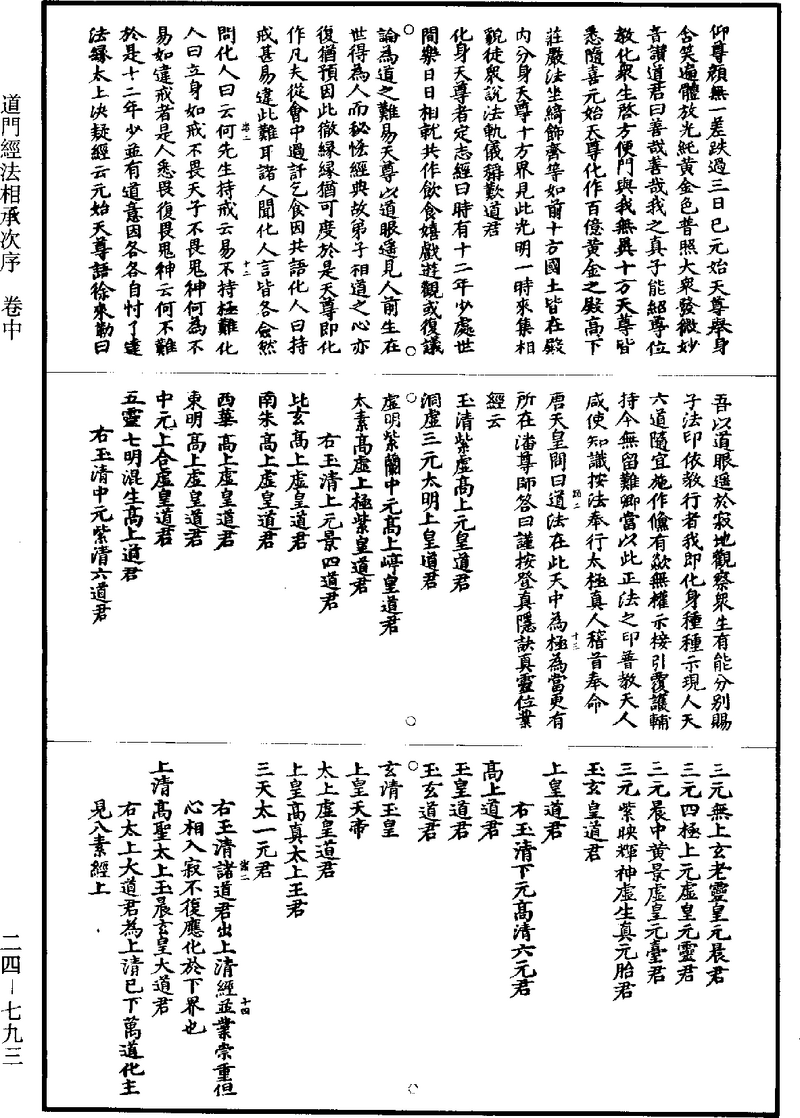 道門經法相承次序　卷中
二四—七九三
仰尊顏無一差跌過三日已元始天尊舉身
含笑遍體放光純黃金色普照大衆發微妙
音讚道君曰善哉善哉我之真子能紹尊位
教化衆生啓方便門與我無異十方天尊皆
悉隨喜元始天尊化作百億黃金之殿高下
莊嚴法坐綺飾齊等如前十方國土皆在殿
內分身天尊十方界見此光明一時來集相
覩徒衆說法軌儀稱歎道君
化身天尊者定志經曰時有十二年少處世
間樂日日相就共作飲食嬉戲遊觀或復議
論為道之難易天尊以道眼遙見人前生在
世得為人而秘恡經典故弟子相道之心亦
復猶預因此微緣緣猶可度於是天尊即化
作凡夫從會中過訐乞食因共語化人曰持
戒甚易違此難耳諸人聞化人言皆各僉然
諸二
問化人曰云何先生持戒云易不持極難化
十二
人曰立身如戒不畏天子不畏鬼神何為不
易如違戒者是人悉畏復畏鬼神云何不難
於是十二年少並有道意因各各自忖了達
法緣太上決疑經云元始天尊語徐來勒曰
吾以道眼遥於寂地觀察衆生有能分別賜
子法印依教行者我即化身種種示現人天
六道隨宜施作儵有歘無權示接引覆護輔
持今無留難卿當以此正法之印普教天人
咸使知識按法奉行太極真人稽首奉命
諸二
唐天皇問曰道法在此天中為極為當更有
十三
所在潘尊師答曰謹按登真隱訣真靈位業
經云
玉清紫虛高上元皇道君
洞虛三元太明上皇道君
虛明紫蘭中元高上𡹘皇道君
太素高虛上極紫皇道君
右玉清上元景四道君
北玄高上虛皇道君
南朱高上虛皇道君
西華高上虛皇道君
東明高上虛皇道君
中元上合虛皇道君
五靈七明混生高上道君
右玉清中元紫清六道君
三元無上玄老靈皇元晨君
三元四極上元虛皇元靈君
三元晨中黃景虛皇元臺君
三元紫映輝神虛生真元胎君
玉玄皇道君
上皇道君
右玉清下元高清六元君
高上道君
玉皇道君
玉玄道君
玄清玉皇
上皇天帝
太上虛皇道君
上皇高真太上王君
三天太一元君
諸二
右玉清諸道君出上清經並業崇重但
十四
心相入寂不復應化於下界也
上清高聖太上玉晨玄皇大道君
右太上大道君為上清已下萬道化主
見八素經上